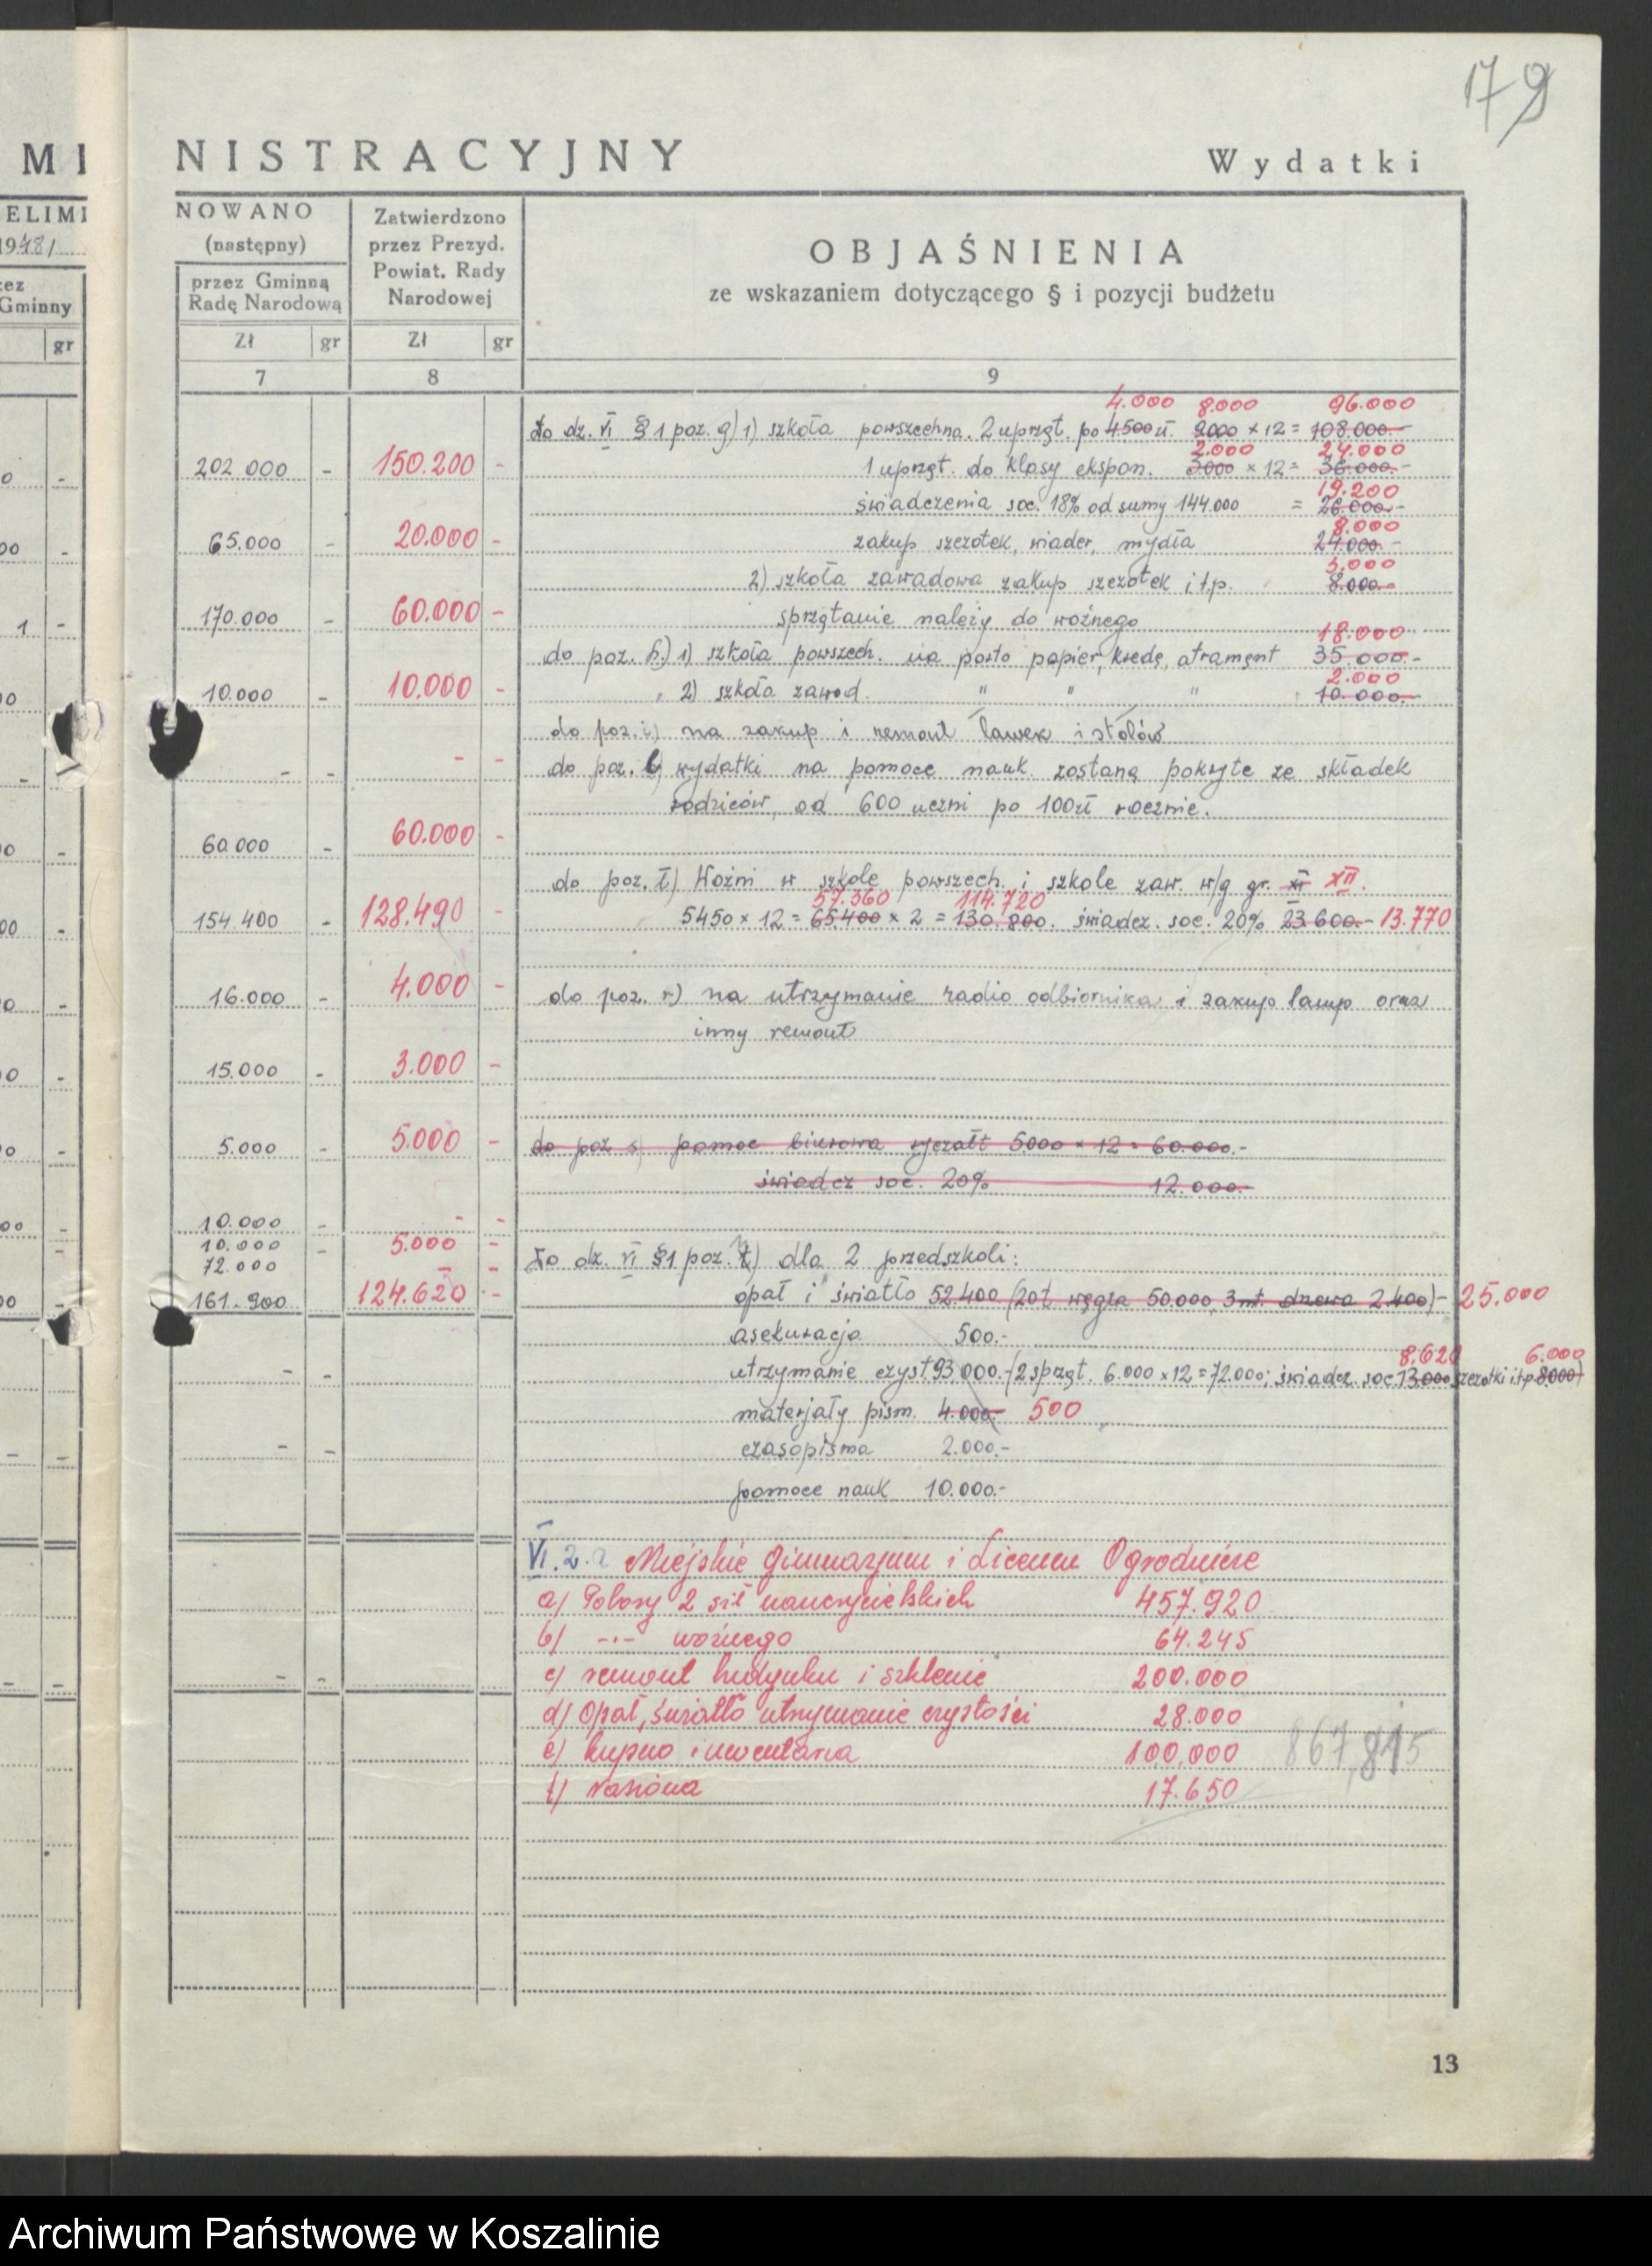 179
MI NISTRACYJNY Wydatki
ELIMI
1948/
Gminny
gr
NOWANO
(następny)
przez Gminną
Radę Narodową
Zatwierdzono
przez Prezyd.
Powiat. Rady
Narodowej
OBJAŚNIENIA
ze wskazaniem dotyczącego § i pozycji budżetu
Zł gr Zł gr
7 8 9
4.000 8.000 96.000
Do dz. VI § 1 poz. g) 1) szkoła powszechna. 2 uprząt. po 4500 zł. 9000 x 12 = 108.000.-
2.000 24.000
202.000 - 150.200 - 1 uprząt. do klasy ekspon. 3000 x 12 = 36.000.-
19.200
świadczenia soc. 18% od sumy 144.000 = 26.000.-
8.000
65.000 - 20.000 - zakup szczotek, wiader, mydła 24.000 -
3.000
2) szkoła zawodowa zakup szczotek i t.p. 8.000.-
170.000 - 60.000 - sprzątanie należy do woźnego
18.000
do poz. h) 1) szkoła powszech. na porto papier, kredę, atrament 35.000.-
2.000
10.000 - 10.000 - " 2) szkoła zawod. " " " 10.000.-
do poz. i) na zakup i remont ławek i stołów
- - - - do poz. l) wydatki na pomoce nauk. zostaną pokryte ze składek
rodziców, od 600 uczni po 100 zł rocznie.
60.000 - 60.000 -
do poz. ł) Woźni w szkole powszech. i szkole zaw. w/g gr. XI XII.
57.360 114.720
154.400 - 128.490 - 5450 x 12 = 65.400 x 2 = 130.800. świadcz. soc. 20% 23.600.- 13.770
16.000 - 4.000 - do poz. r) na utrzymanie radio odbiornika i zakup lamp oraz
inny remont
15.000 - 3.000 -
5.000 - 5.000 - do poz s) pomoc biurowa ryczałt 5000 x 12 = 60.000.-
świadcz soc. 20% 12.000.-
10.000 - - -
10.000 - 5.000 -
72.000 - - Do dz. VI § 1 poz. t) dla 2 przedszkoli:
161.900 124.620 - opał i światło 52.400 (20 t. węgla 50.000, 3 mt. drzewa 2.400) - 25.000
asekuracja 500.-
8.620 6.000
utrzymanie czyst. 93.000.- (2 sprząt. 6.000 x 12 = 72.000; świadcz. soc. 13.000 szczotki i t.p. 8.000)
materjały piśm. 4.000.- 500
czasopisma 2.000.-
pomoce nauk 10.000.-
VI. 2. a Miejskie Gimnazjum i Liceum Ogrodnicze
a) Pobory 2 sił nauczycielskich 457.920
b) -"- woźnego 64.245
c) remont budynku i szklenie 200.000
d) Opał, światło utrzymanie czystości 28.000
e) kupno inwentarza 100.000 867,815
f) nasiona 17.650
13
Archiwum Państwowe w Koszalinie